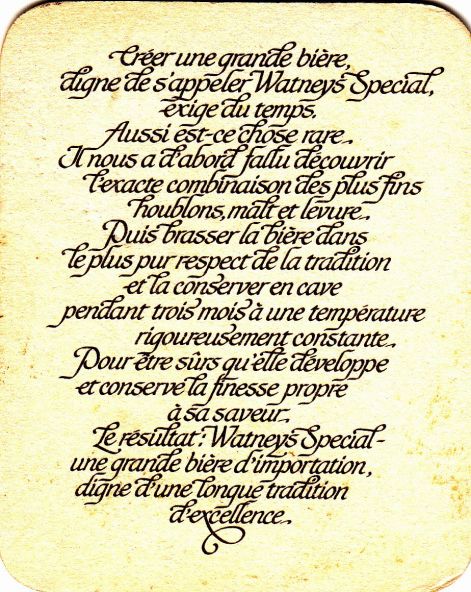 Créer une grande bière,
digne de s'appeler Watneys Special,
exige du temps.
Aussi est-ce chose rare.
Il nous a d'abord fallu découvrir
l'exacte combinaison des plus fins
houblons, malt et levure.
Puis brasser la bière dans
le plus pur respect de la tradition
et la conserver en cave
pendant trois mois à une température
rigoureusement constante.
Pour être sûrs qu'elle développe
et conserve la finesse propre
à sa saveur.
Le résultat: Watneys Special-
une grande bière d'importation,
digne d'une longue tradition
d'excellence.